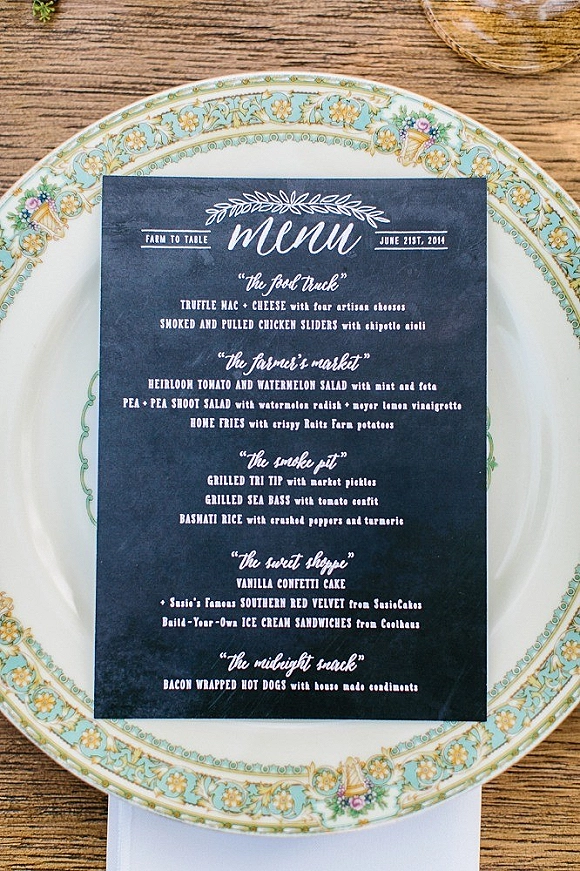 FARM TO TABLE menu JUNE 21ST, 2014
"the food truck"
TRUFFLE MAC + CHEESE with four artisan cheeses
SMOKED AND PULLED CHICKEN SLIDERS with chipotle aioli
"the farmer's market"
HEIRLOOM TOMATO AND WATERMELON SALAD with mint and feta
PEA + PEA SHOOT SALAD with watermelon radish + meyer lemon vinaigrette
HOME FRIES with crispy Raits Farm potatoes
"the smoke pit"
GRILLED TRI TIP with market pickles
GRILLED SEA BASS with tomato confit
BASMATI RICE with crushed peppers and turmeric
"the sweet shoppe"
VANILLA CONFETTI CAKE
+ Susie's Famous SOUTHERN RED VELVET from SusieCakes
Build-Your-Own ICE CREAM SANDWICHES from Coolhaus
"the midnight snack"
BACON WRAPPED HOT DOGS with house made condiments